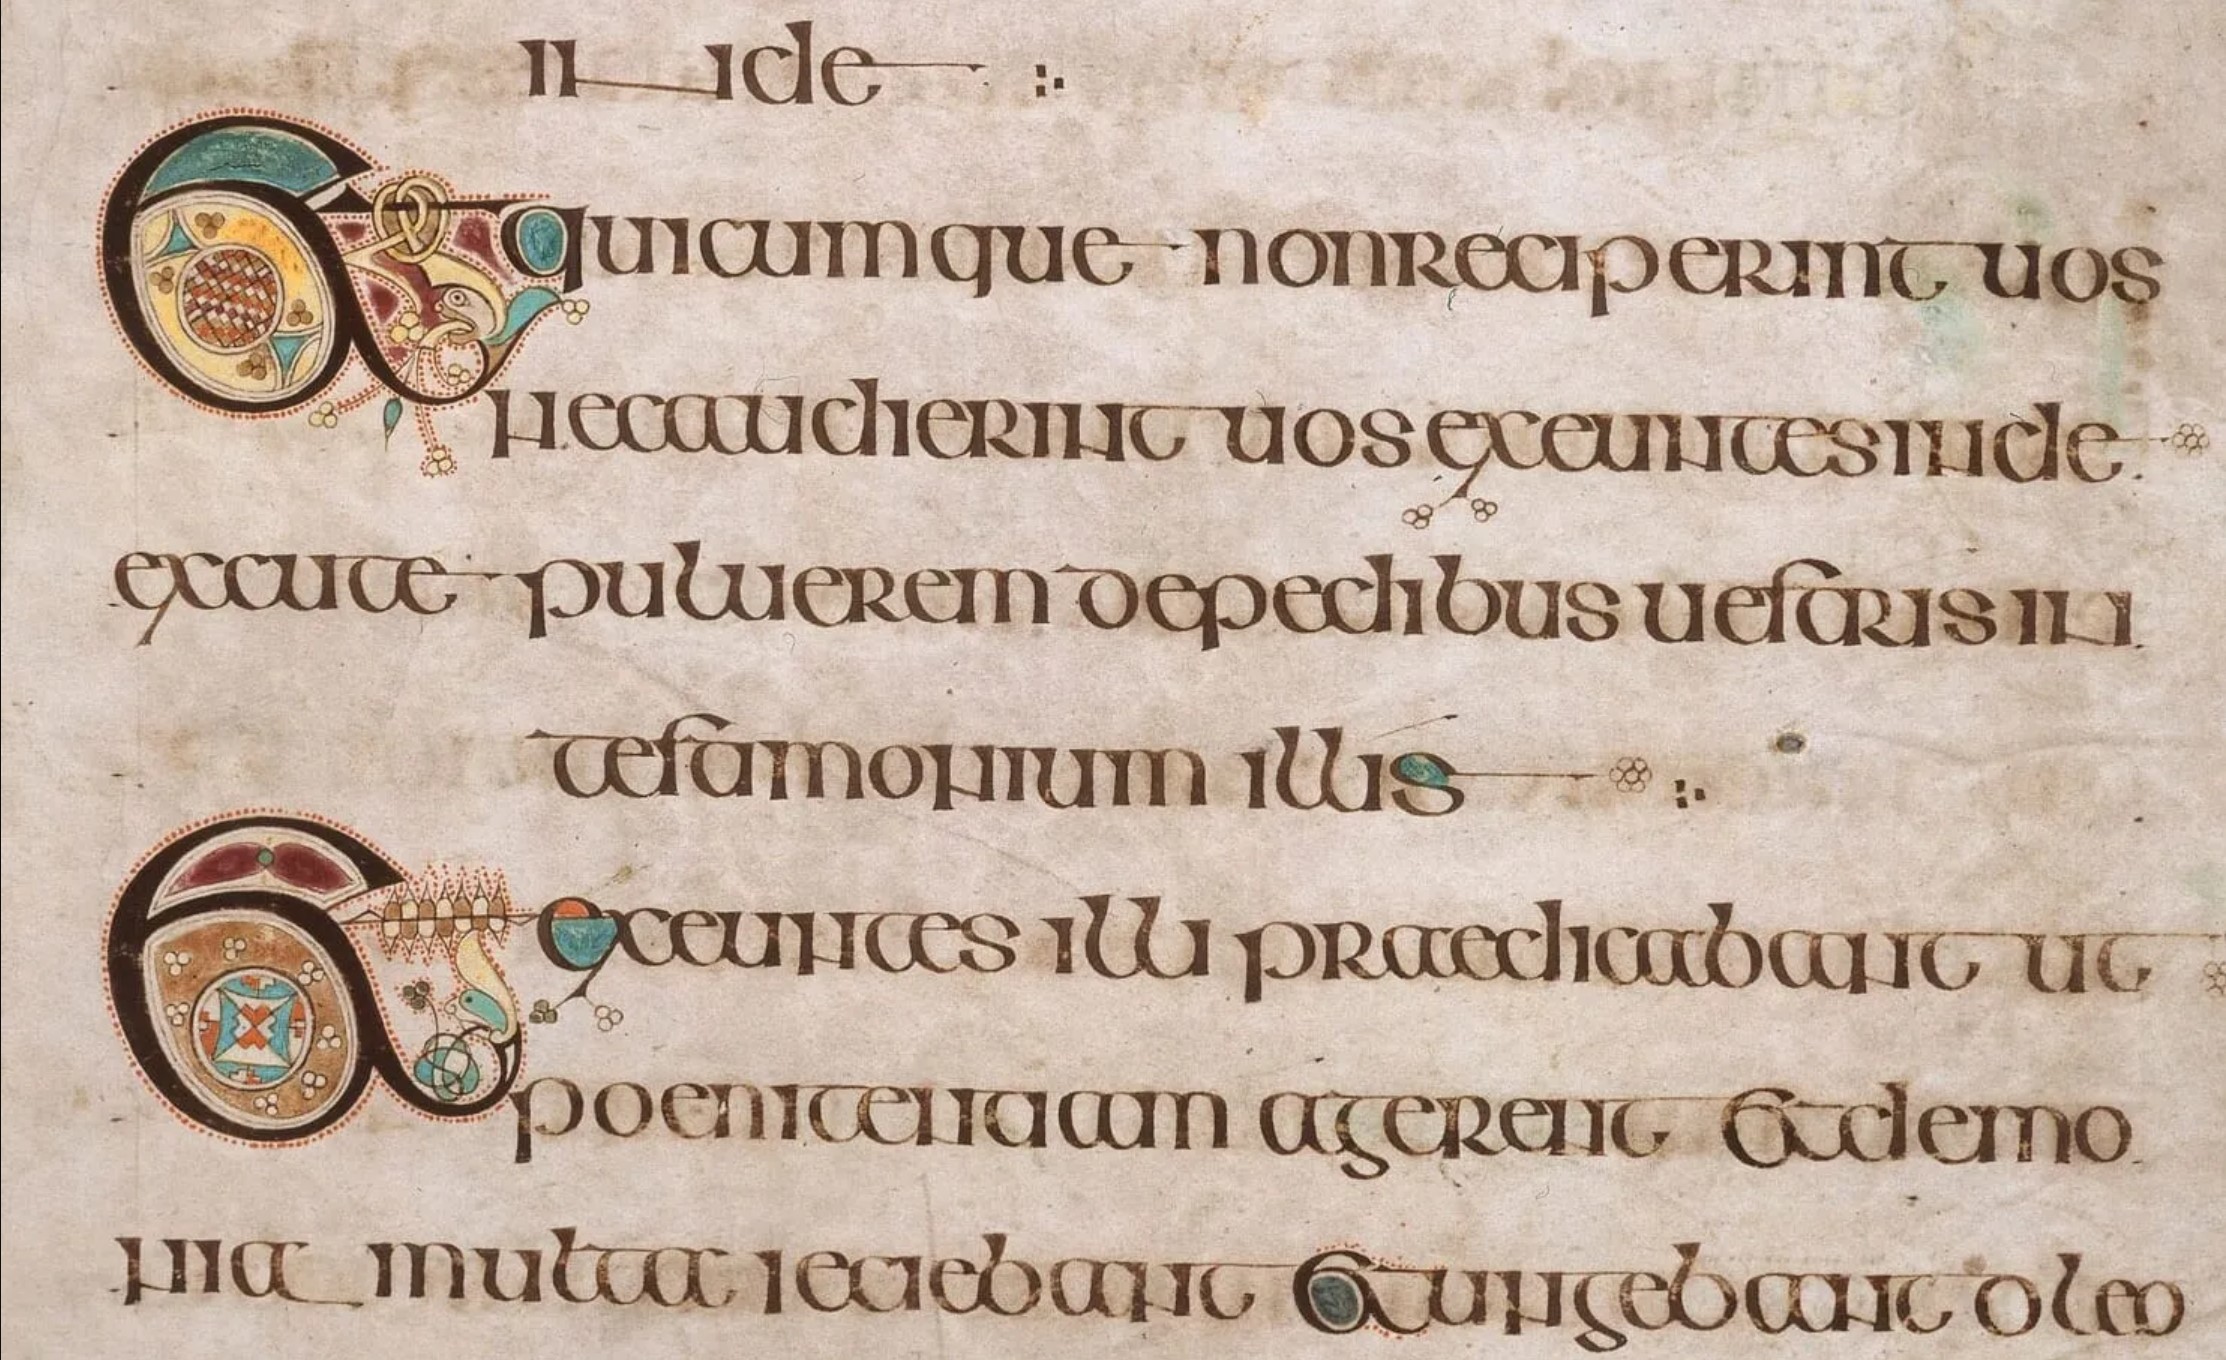 inde
Et quicumque non reciperint uos
nec audierint uos exeuntes inde
excute puluerem de pedibus uestris in
testimonium illis
Et exeuntes illi praedicabant ut
poenitentiam agerent Et demo
nia multa ieciebant Et ungebant oleo